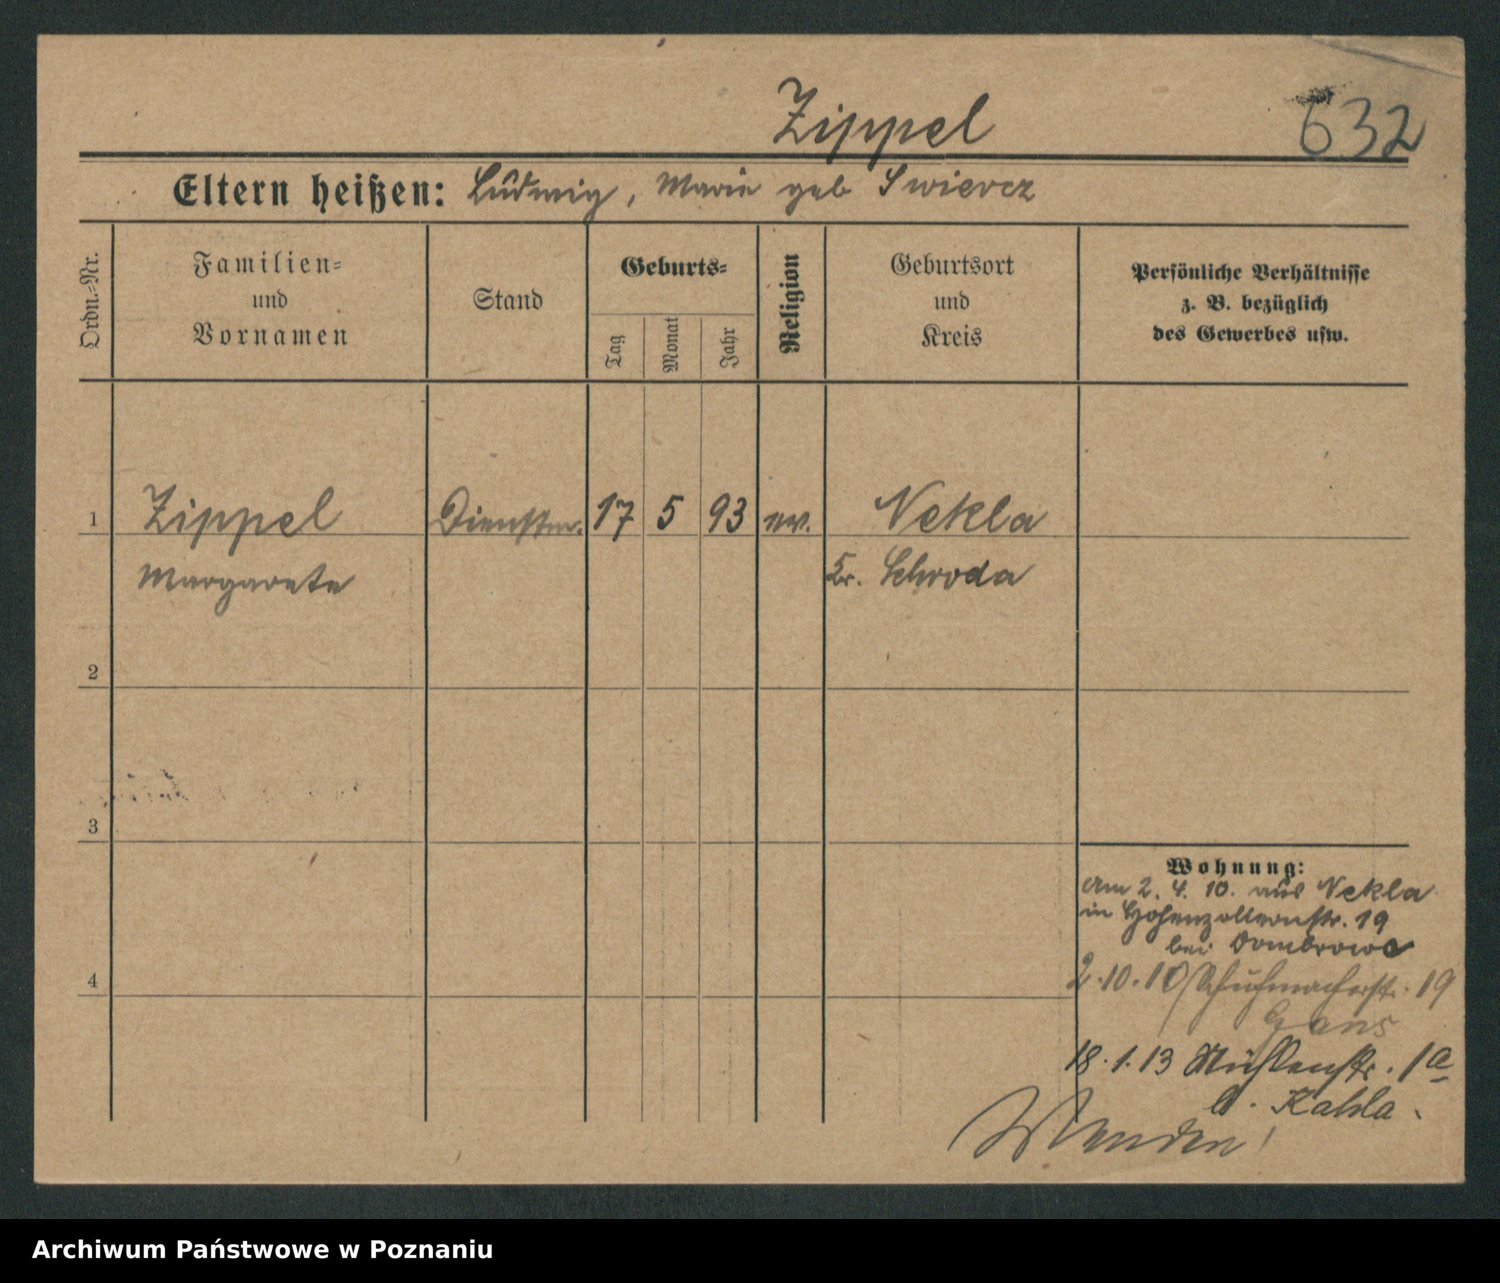 Zippel
632
Eltern heißen: Ludwig, Marie geb Swiercz
Ordn.-Nr.
Familien-
und
Vornamen
Stand
Geburts-
Tag
Monat
Jahr
Religion
Geburtsort
und
Kreis
Persönliche Verhältnisse
z. B. bezüglich
des Gewerbes usw.
1 Zippel Dienstm. 17 5 93 ev. Nekla
Margarete Kr. Schroda
2
3
4
Wohnung:
Am 2. 4. 10. aus Nekla
in Hohenzollernstr. 19
bei Dombrowe
2.10.10 Schuhmacherstr. 19
Gans
18.1.13 Mühlenstr. 1a
b. Kahla.
Wenden!
Archiwum Państwowe w Poznaniu